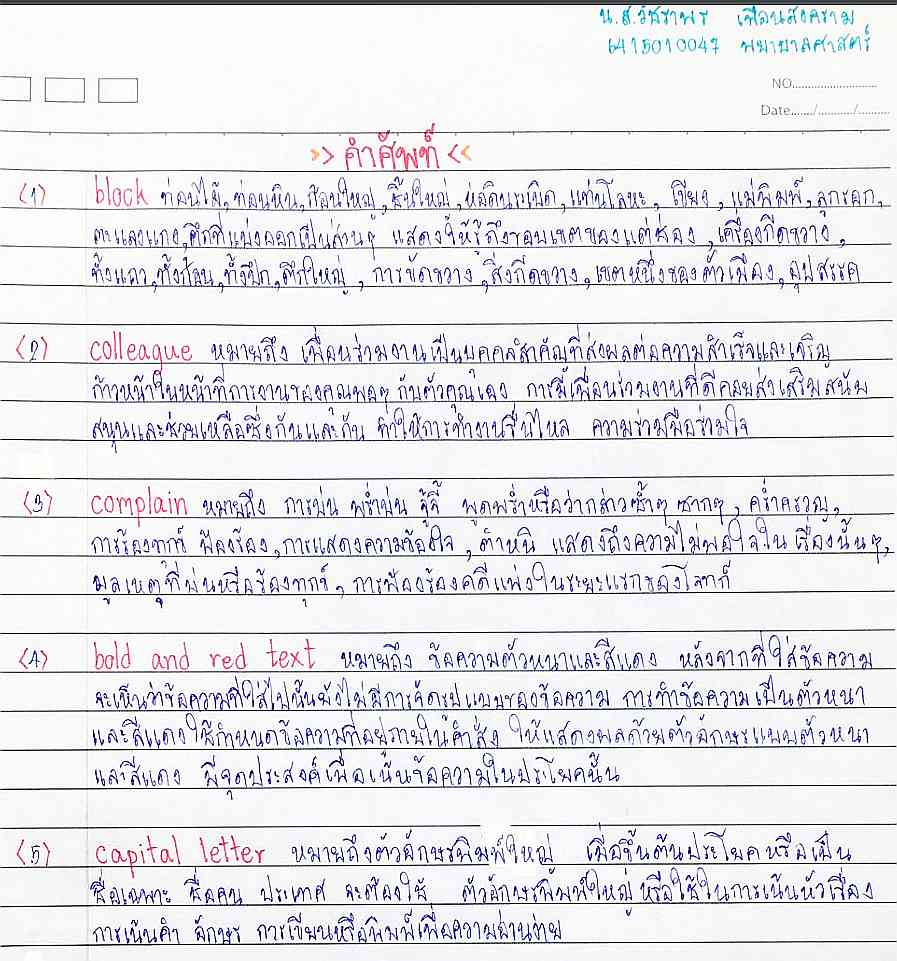 น.ส.วัชราพร เฟือนสงคราม
6415010047 พยาบาลศาสตร์
NO.
Date....../....../......
>> คำศัพท์ <<
<1> block ท่อนไม้, ท่อนหิน, ก้อนใหญ่, ชิ้นใหญ่, หล่อินระเบิด, แท่นโลหะ, เขียง, แม่พิมพ์, ลูกรอก,
ตะแลงแกง, ตึกที่แบ่งออกเป็นส่วนๆ แสดงให้รู้ถึงขอบเขตของแต่ช่อง, เครื่องกีดขวาง,
ทั้งแถว, ทั้งก้อน, ทั้งปึก, ตึกใหญ่, การขัดขวาง, สิ่งกีดขวาง, เขตหนึ่งของตัวเมือง, อุปสรรค
<2> colleague หมายถึง เพื่อนร่วมงานเป็นบุคคลสำคัญที่ส่งผลต่อความสำเร็จและเจริญ
ก้าวหน้าในหน้าที่การงานของคุณพอๆ กับตัวคุณเอง การมีเพื่อนร่วมงานที่ดีคอยส่งเสริมสนับ
สนุนและช่วยเหลือซึ่งกันและกัน ทำให้การทำงานลื่นไหล ความร่วมมือร่วมใจ
<3> complain หมายถึง การบ่น พร่ำบ่น จู้จี้ พูดพร่ำหรือว่ากล่าวซ้ำๆ ซากๆ, คร่ำครวญ,
การร้องทุกข์ ฟ้องร้อง, การแสดงความข้องใจ, ตำหนิ แสดงถึงความไม่พอใจในเรื่องนั้นๆ,
มูลเหตุที่บ่นหรือร้องทุกข์, การฟ้องร้องคดีแพ่งในระยะแรกของโจทก์
<4> bold and red text หมายถึง ข้อความตัวหนาและสีแดง หลังจากที่ใส่ข้อความ
จะเห็นว่าข้อความที่ใส่ไปนั้นยังไม่มีการจัดรูปแบบของข้อความ การทำข้อความเป็นตัวหนา
และสีแดงใช้กำหนดข้อความที่อยู่ภายในคำสั่ง ให้แสดงผลด้วยตัวอักษรแบบตัวหนา
และสีแดง มีจุดประสงค์เพื่อเน้นข้อความในประโยคนั้น
<5> capital letter หมายถึงตัวอักษรพิมพ์ใหญ่ เมื่อขึ้นต้นประโยคหรือเป็น
ชื่อเฉพาะ ชื่อคน ประเทศ จะต้องใช้ ตัวอักษรพิมพ์ใหญ่ หรือใช้ในการเน้นหัวเรื่อง
การเน้นคำ อักษร การเขียนหรือพิมพ์เพื่อความอ่านง่าย